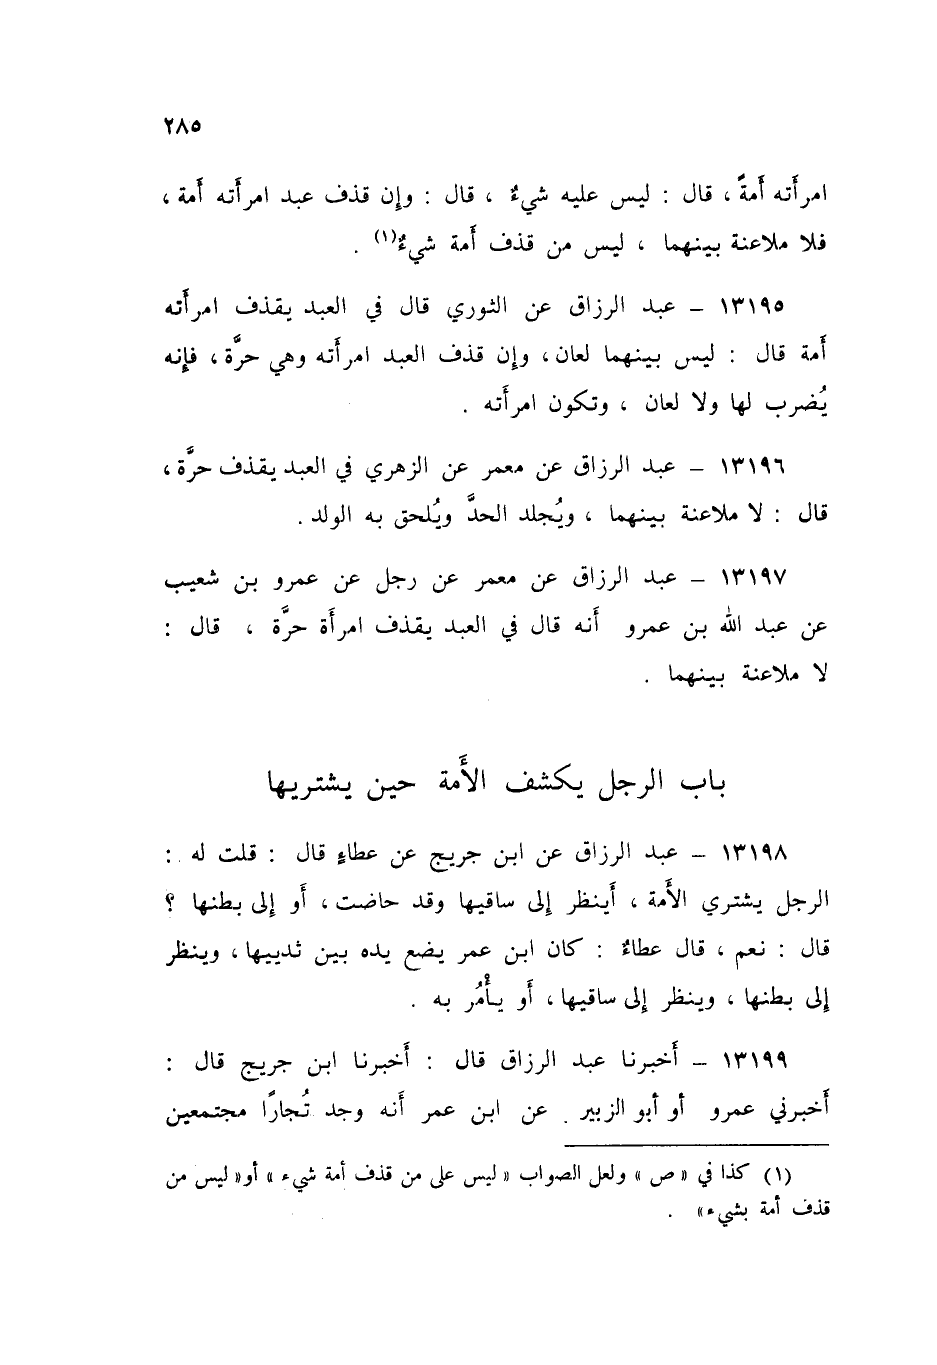 ٢٨٥
امرأَته أَمةً ، قال : ليس عليه شيءٌ ، قال : وإن قذف عبد امرأَته أَمة ،
فلا ملاعنة بينهما ، ليس من قذف أَمة شيءٌ(١) .
١٣١٩٥ – عبد الرزاق عن الثوري قال في العبد يقذف امرأَته
أَمة قال : ليس بينهما لعان ، وإن قذف العبد امرأَته وهي حرَّة ، فإنه
يُضرب لها ولا لعان ، وتكون امرأَته .
١٣١٩٦ – عبد الرزاق عن معمر عن الزهري في العبد يقذف حرَّة ،
قال : لا ملاعنة بينهما ، ويُجلد الحدَّ ويُلحق به الولد .
١٣١٩٧ – عبد الرزاق عن معمر عن رجل عن عمرو بن شعيب
عن عبد الله بن عمرو أَنه قال في العبد يقذف امرأَة حرَّة ، قال :
لا ملاعنة بينهما .
باب الرجل يكشف الأَمة حين يشتريها
١٣١٩٨ – عبد الرزاق عن ابن جريج عن عطاءٍ قال : قلت له :
الرجل يشتري الأَمة ، أَينظر إلى ساقيها وقد حاضت ، أَو إلى بطنها ؟
قال : نعم ، قال عطاءٌ : كان ابن عمر يضع يده بين ثدييها ، وينظر
إلى بطنها ، وينظر إلى ساقيها ، أَو يأْمُر به .
١٣١٩٩ – أَخبرنا عبد الرزاق قال : أَخبرنا ابن جريج قال :
أَخبرني عمرو أو أبو الزبير . عن ابن عمر أَنه وجد تُجارًا مجتمعين
(١) كذا في « ص » ولعل الصواب « ليس على من قذف أمة شيء » أو « ليس من
قذف أمة بشيء » .